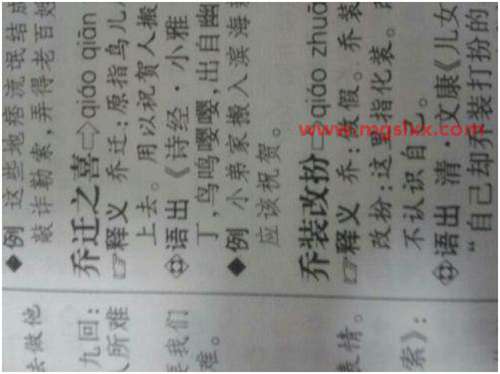 去做他
九回：
人所难
要我们
难。
表情。
索》：
◆例 这些地痞流氓结成
敲诈勒索，弄得老百姓
乔迁之喜⇨qiáo qiān
☞释义 乔迁：原指鸟儿
上去。用以祝贺人搬
语出《诗经·小雅
丁，鸟鸣嘤嘤，出自幽
◆例 小弟家搬入滨海
应该祝贺。
乔装改扮⇨qiáo zhuā
☞释义 乔：做假。乔装
改扮：这里指化装。
不认识自己。
语出 清·文康《儿女
“自己却乔装打扮的